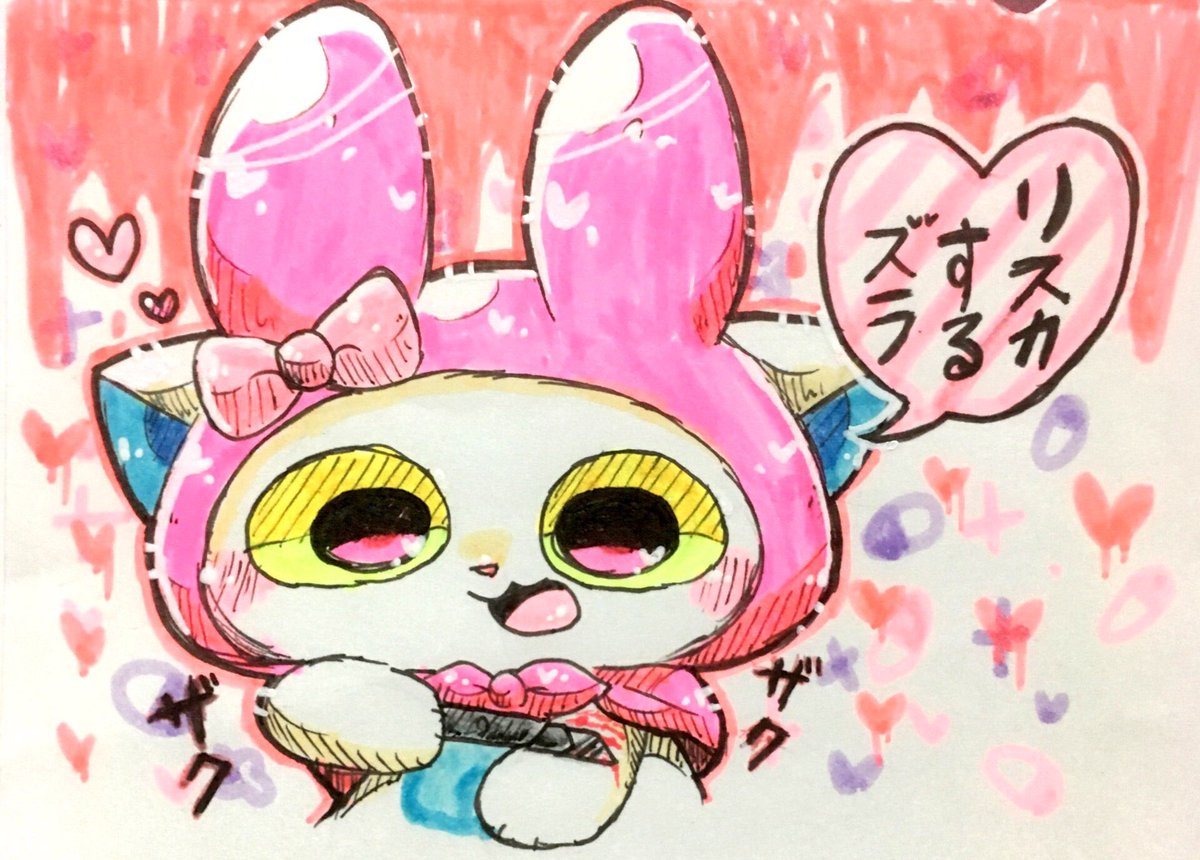 リスカ
する
ズラ
ザク
ザク